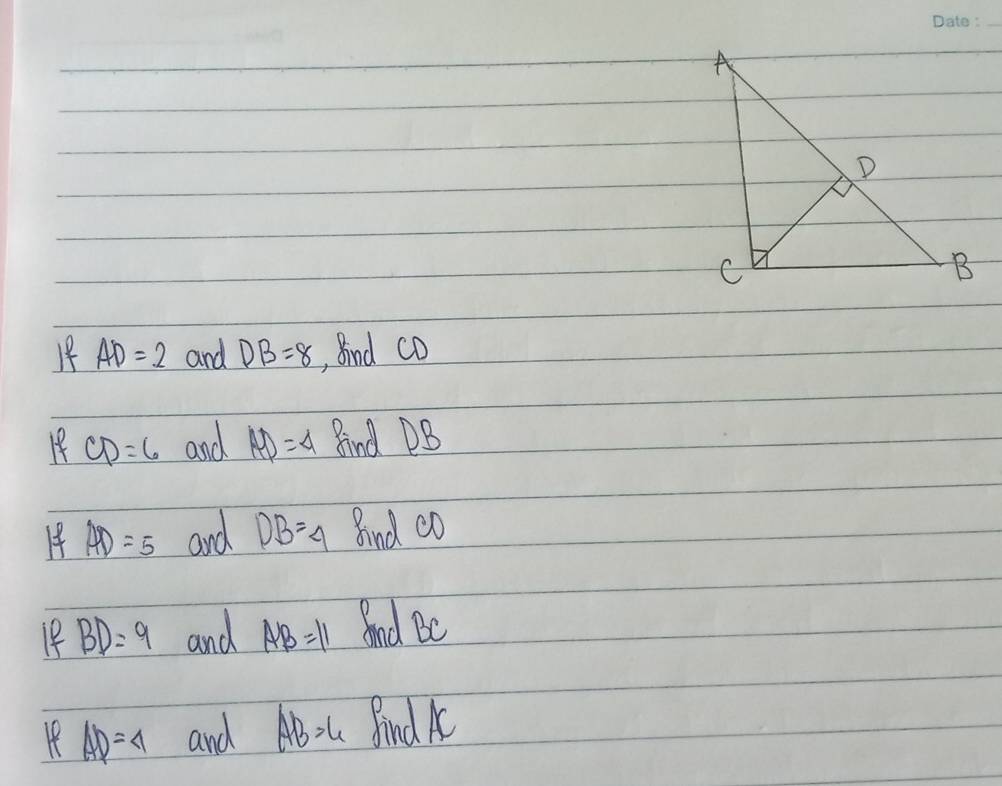 Date :
A
D
C
B
If AD = 2 and DB = 8, find CD
If CD = 6 and AD = 4 find DB
If AD = 5 and DB = 4 find CD
If BD = 9 and AB = 11 find BC
If AD = 4 and AB = 6 find AC